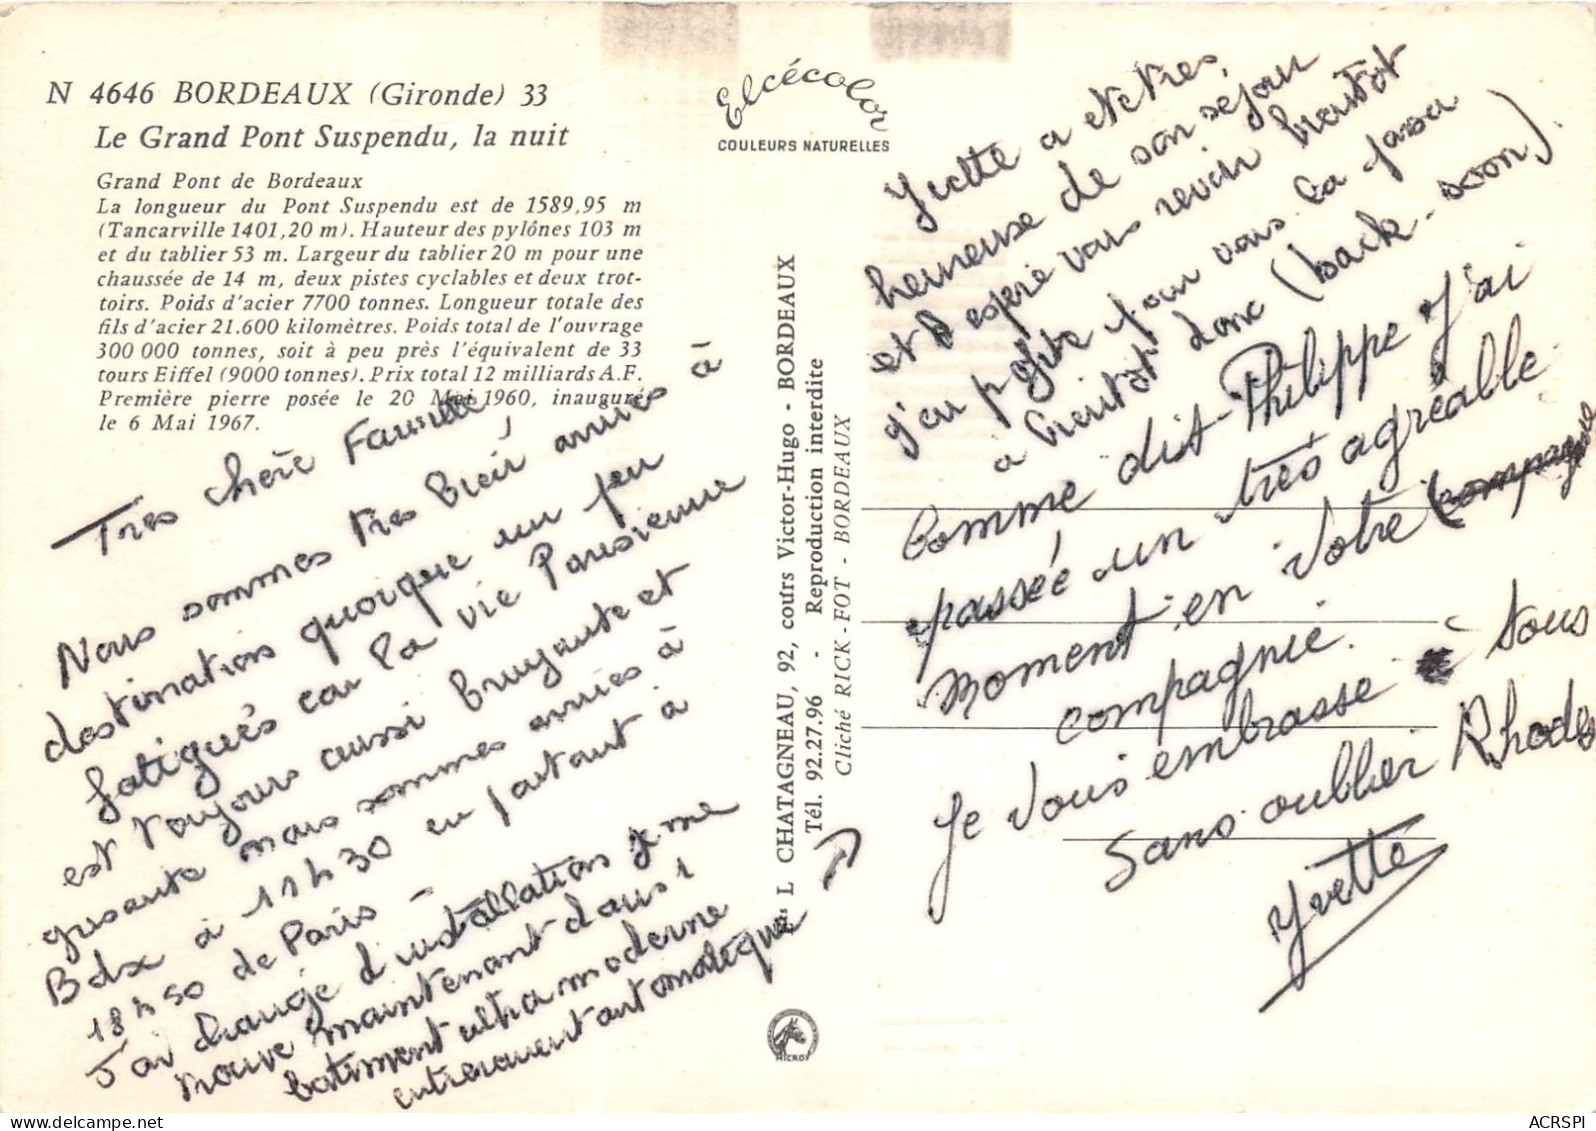 N 4646 BORDEAUX (Gironde) 33
Le Grand Pont Suspendu, la nuit
Grand Pont de Bordeaux
La longueur du Pont Suspendu est de 1589,95 m
(Tancarville 1401,20 m). Hauteur des pylônes 103 m
et du tablier 53 m. Largeur du tablier 20 m pour une
chaussée de 14 m, deux pistes cyclables et deux trot-
toirs. Poids d'acier 7700 tonnes. Longueur totale des
fils d'acier 21.600 kilomètres. Poids total de l'ouvrage
300 000 tonnes, soit à peu près l'équivalent de 33
tours Eiffel (9000 tonnes). Prix total 12 milliards A.F.
Première pierre posée le 20 Mai 1960, inauguré
le 6 Mai 1967.
Très chère Famille,
Nous sommes très bien arrivés à
destination quoique un peu
fatigués car la vie Parisienne
est toujours aussi bruyante et
grisante mais sommes arrivés à
Bdx à 11h30 en partant à
18h50 de Paris -
J'ai changé d'installation je me
trouve maintenant dans 1
batiment ultra moderne
entièrement automatique
Elcécolor
COULEURS NATURELLES
L CHATAGNEAU, 92, cours Victor-Hugo - BORDEAUX
Tél. 92.27.96 - Reproduction interdite
Cliché RICK-FOT - BORDEAUX
MICRO
Yvette a été très
heureuse de son séjour
et espère vous revoir bientôt
j'en profite pour vous la passer
a bientôt donc (back-soon)
Comme dit Philippe J'ai
passée un très agréable
moment en votre
compagnie.
Je vous embrasse à tous
Sans oublier Rhodes
Yvette
ACRSPI